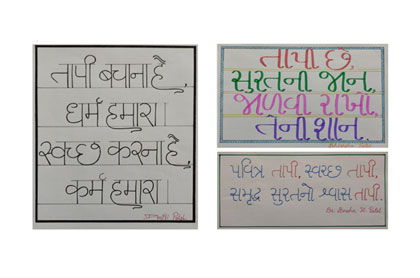 तापी बचना है,
धर्म हमारा।
स्वच्छ करना है,
कर्म हमारा।
તાપી છે,
સુરતની જાન,
જાળવી રાખો,
તેની શાન.
પવિત્ર તાપી, સ્વચ્છ તાપી,
સમૃદ્ધ સુરતનો શ્વાસ તાપી.